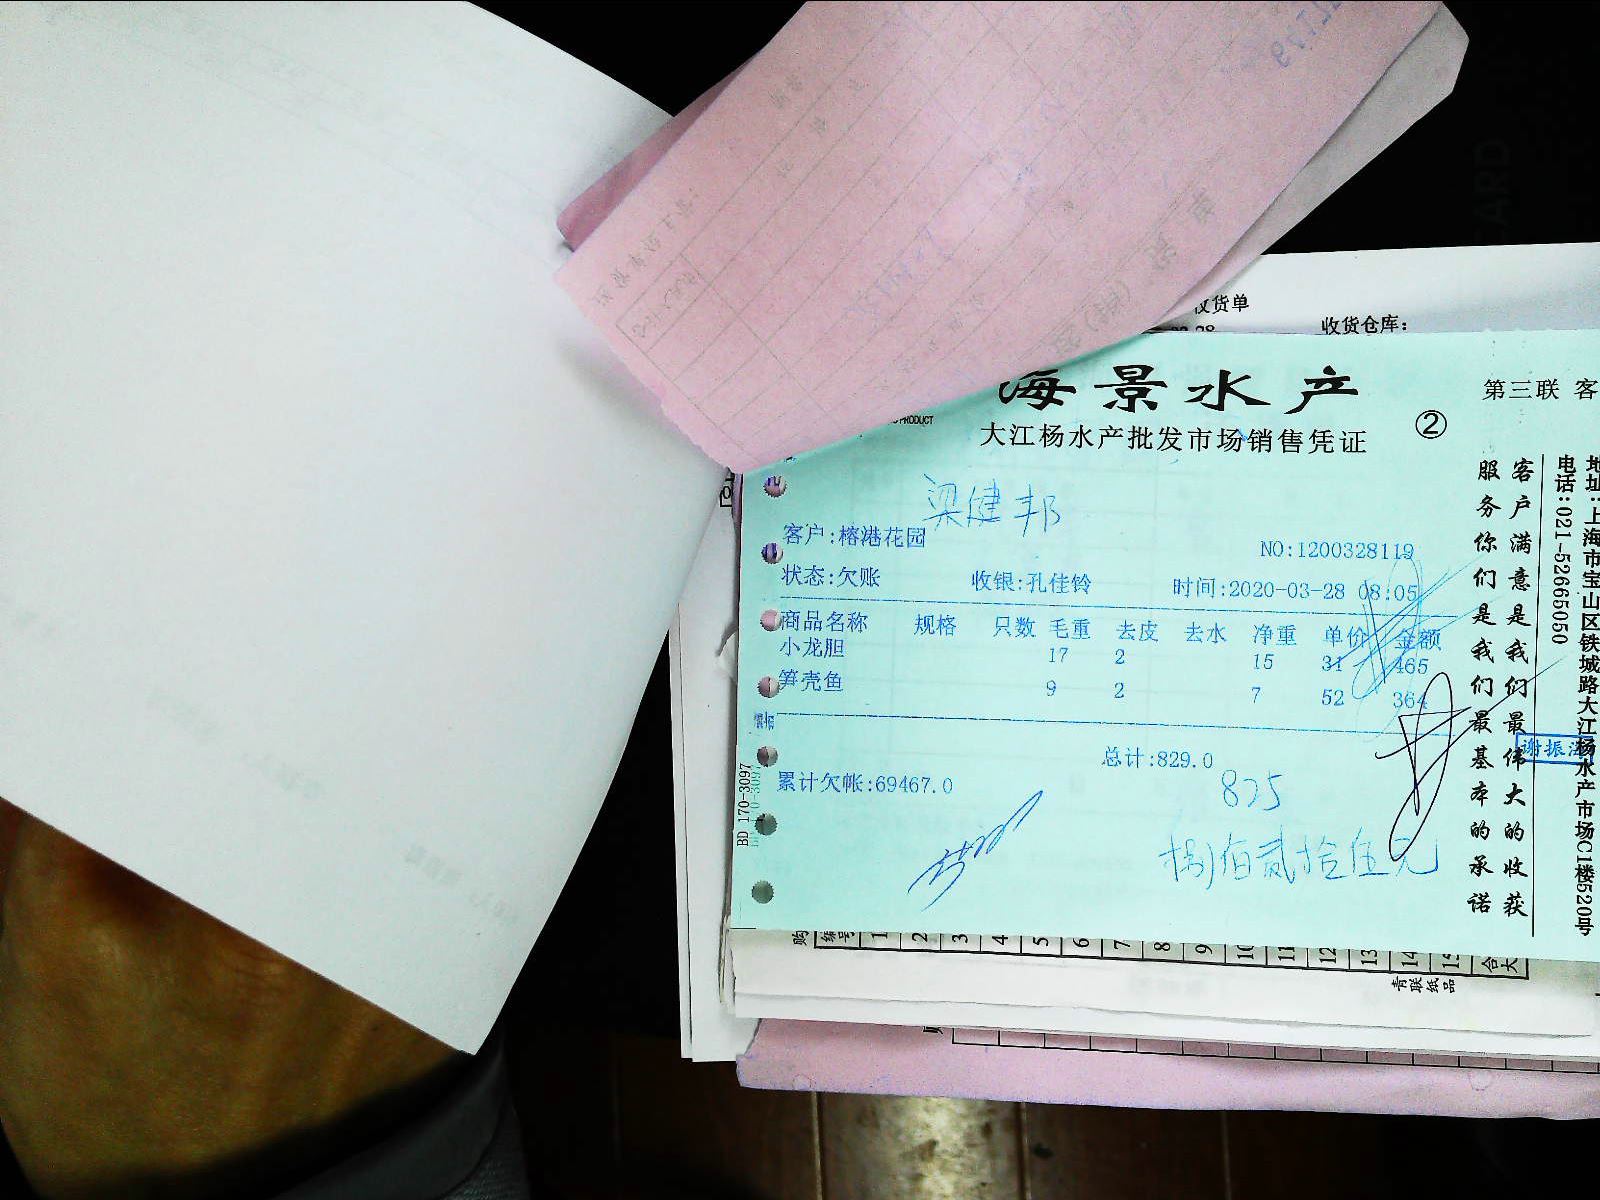 收货单
收货仓库:
海景水产
大江杨水产批发市场销售凭证
②
第三联 客
梁健邦
客户:榕港花园
NO:1200328119
状态:欠账 收银:孔佳铃 时间:2020-03-28 08:05
商品名称 规格 只数 毛重 去皮 去水 净重 单价 金额
小龙胆 17 2 15 31 465
笋壳鱼 9 2 7 52 364
总计:829.0
累计欠帐:69467.0
825
捌佰贰拾伍元
客户满意是我们最伟大的收获
服务你们是我们最基本的承诺
地址:上海市宝山区铁城路大江杨水产市场C1楼520号
电话:021-52665050
BD 170-3097
购
编号 1 2 3 4 5 6 7 8 9 10 11 12 13 14 15 合
青联纸品